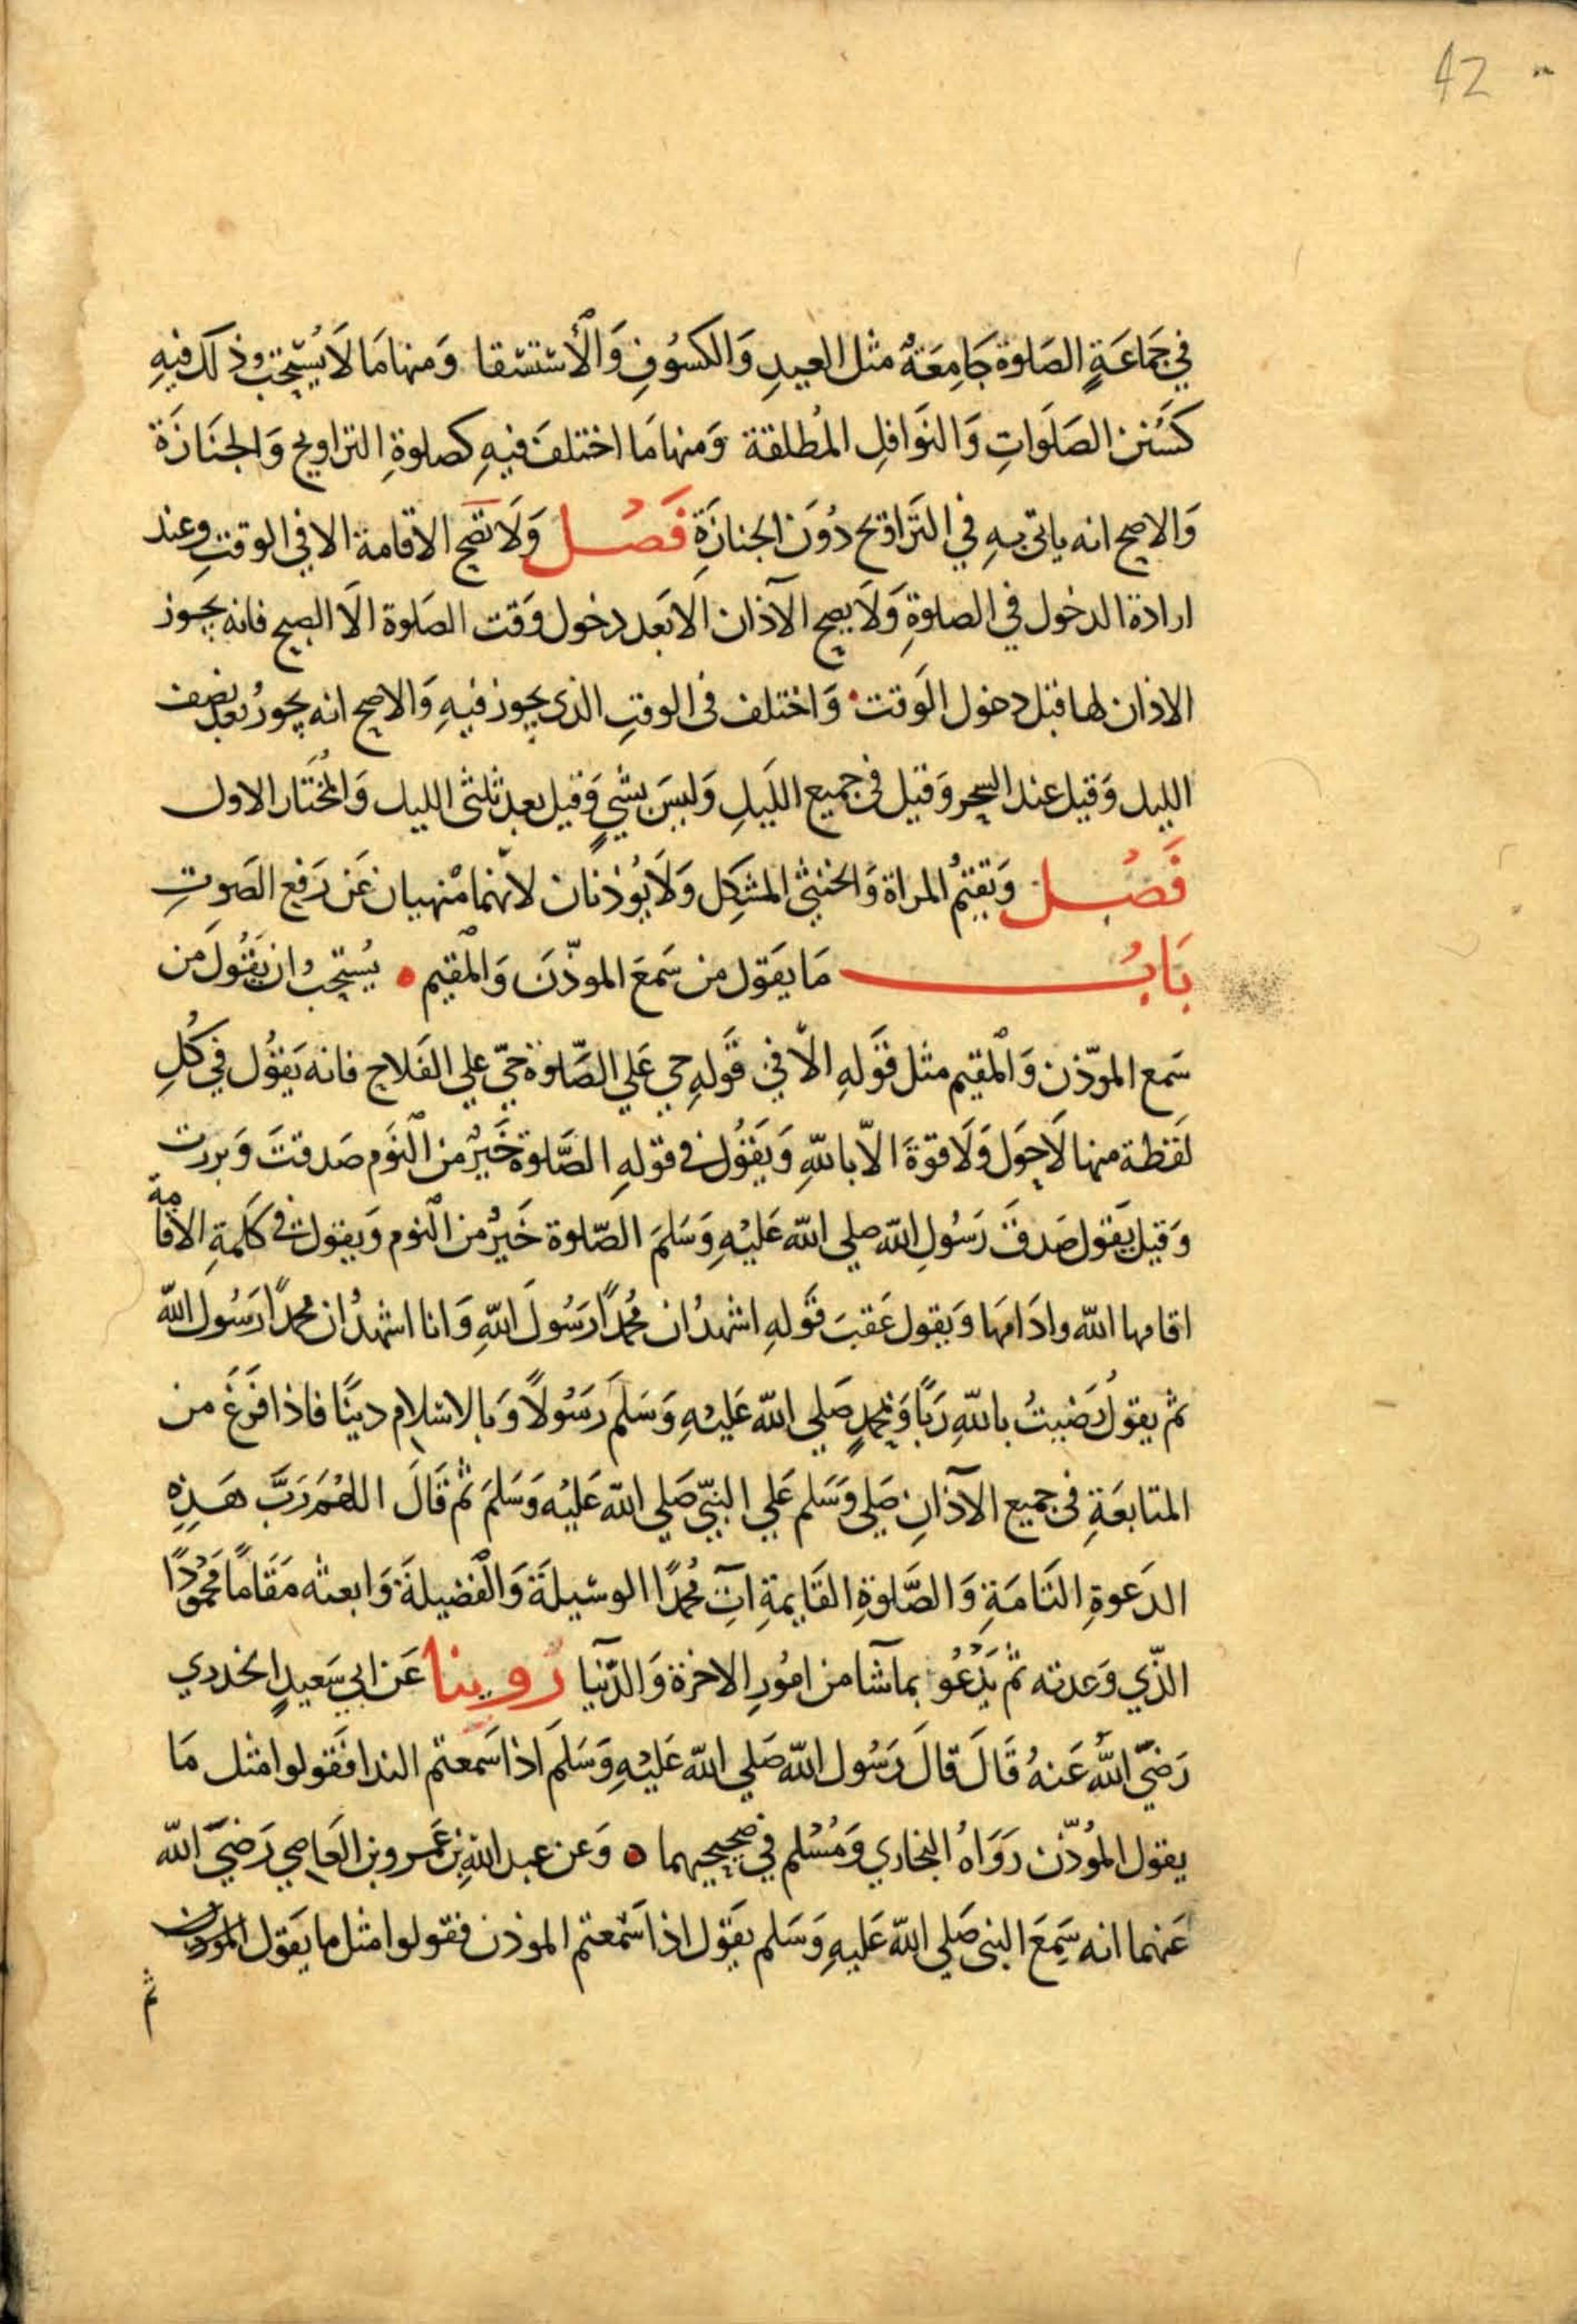 42
في جَمَاعَةٍ الصَلوة جَامِعَةٌ مثل العيدِ وَالكسُوفِ وَالأستسقا وَمنها مَا لاَ يُستحب ذلك فيهِ
كَسُنن الصَلَواتِ وَالنوَافلِ المُطلقة وَمنها مَا اختلفَ فيهِ كصلوةِ التراويح وَالجنَازَة
وَالاصح انه ياتي بهِ في التَراويح دُوَن الجنازَةِ فَصْل وَلاَ تَصح الاقامة الا في الوقتِ وعند
ارادة الدخول في الصلوةِ وَلاَ يصح الآذان الا بَعد دخول وَقت الصَلوة الاَ الصبح فانه يجوز
الاذان لها قبل دخول الوَقت وَاختلف في الوقتِ الذي يجوز فيهِ وَالاصح انه يجوزُ بعد نصف
الليل وَقيل عند السحر وَقيل في جميع اللَيلِ وَليسَ بشيٍ وَقيل بعد ثلثي الليل وَالمُختَار الاول
فَصْل وَتقيمُ المراة وَالخنثي المشكِل وَلاَ يُوذنان لانهما منهيان عَن رَفع الصَوتِ
بَابُ مَا يقَول من سَمعَ الموذّنَ وَالمقيم يُستحب ان يَقُولَ من
سَمع الموّذن وَالمقيم مثل قَولهِ الاّ في قَولهِ حي عَلي الصَّلوة حيّ علي الفَلاح فانه يَقوُل في كُلِ
لَفظة منها لاَ حَول وَلاَ قوةَ الاّ باللهِ وَيَقُول في قولهِ الصَّلوة خَيرٌ من النَوم صَدقتَ وَبررت
وَقيل يَقول صَدقَ رَسُولِ الله صلي الله عَليْهِ وَسَلمَ الصّلوة خَيرٌ من النوم وَيقول في كَلمةِ الاقامة
اقامها الله وادَامهَا وَيقول عَقبَ قَولهِ اشهدُ ان مُحمدًا رَسُولَ اللهِ وَانا اشهدُ ان محمدًا رَسُول الله
ثم يقولُ رَضيتُ باللهِ رَبًا وَبمحمدٍ صَلي الله عَليهِ وَسَلمَ رَسَولاً وَبالاسْلام دينًا فاذا فَرَغَ من
المتابعَةِ في جميع الآذانِ صَلي وَسَلم عَلي النبيّ صَلي الله عَليْه وَسَلمَ ثم قَالَ اللهُم رَبَّ هَذِهِ
الدَعوةِ التَامَةِ وَالصَّلوةِ القَايمةِ آتِ مُحمدًا الوسيلَة وَالفضيلةَ وَابعثه مَقَامًا محمُودًا
الذّي وَعدته ثم يَدْعُو بما شا من امُورِ الاخرة وَالدّنيا رُوينا عَن ابي سَعيدٍ الخدري
رَضيّ اللهُ عَنهُ قَالَ قالَ رَسُول الله صَلي الله عَليْهِ وَسَلمَ اذا سَمعتم الندا فَقولوا مثل مَا
يقول المُوذّن رَوَاهُ البخاري وَمُسْلم في صحيحيهما وَعن عبد اللهِ بن عَمرو بن العَاصي رَضيَ الله
عَنهما انه سَمِعَ النبي صَلي اللهَ عَليهِ وَسَلم يَقَول اذا سَمعتم الموذن فقولوا مثل ما يقَول الموذن
ثم